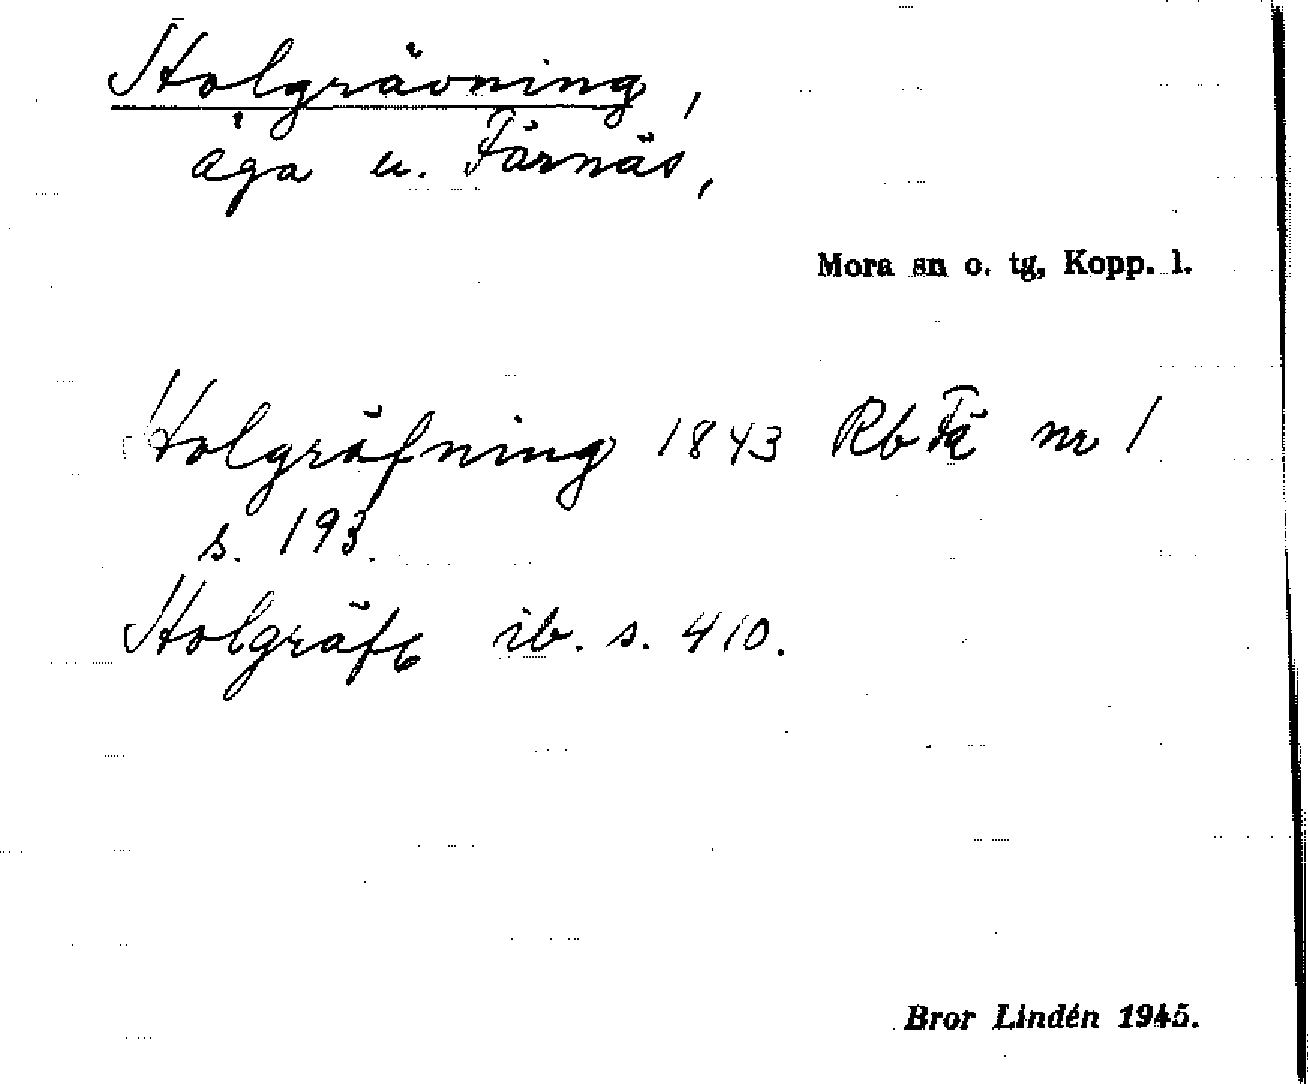 Stolgrävning,
äga u. Färnäs,
Mora sn o. tg, Kopp. l.
Stolgräfning 1843 Rb Fä nr 1
s. 193.
Stolgräfs ib. s. 410.
Bror Lindén 1945.